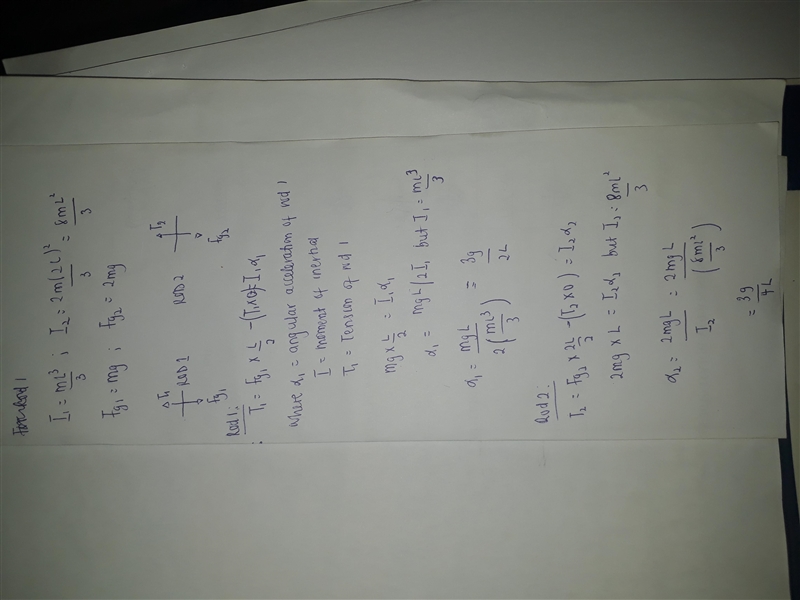 For Rod 1
I₁ = mL³/3 ; I₂ = 2m(2L)²/3 = 8mL²/3
Fg₁ = mg ; Fg₂ = 2mg
T₁ T₂
ROD 1 ROD 2
Fg₁ Fg₂
Rod 1:
T₁ = Fg₁ × L/2 - (T₁×0) = I₁α₁
where α₁ = angular acceleration of rod 1
I = moment of inertial
T₁ = Tension of rod 1
mg × L/2 = I₁α₁
α₁ = mgL/2I₁ but I₁ = mL³/3
α₁ = mgL/2(mL³/3) = 3g/2L
Rod 2:
T₂ = Fg₂ × 2L/2 - (T₂×0) = I₂α₂
2mg × L = I₂α₂ but I₂ = 8mL²/3
α₂ = 2mgL/I₂ = 2mgL/(8mL²/3)
= 3g/4L